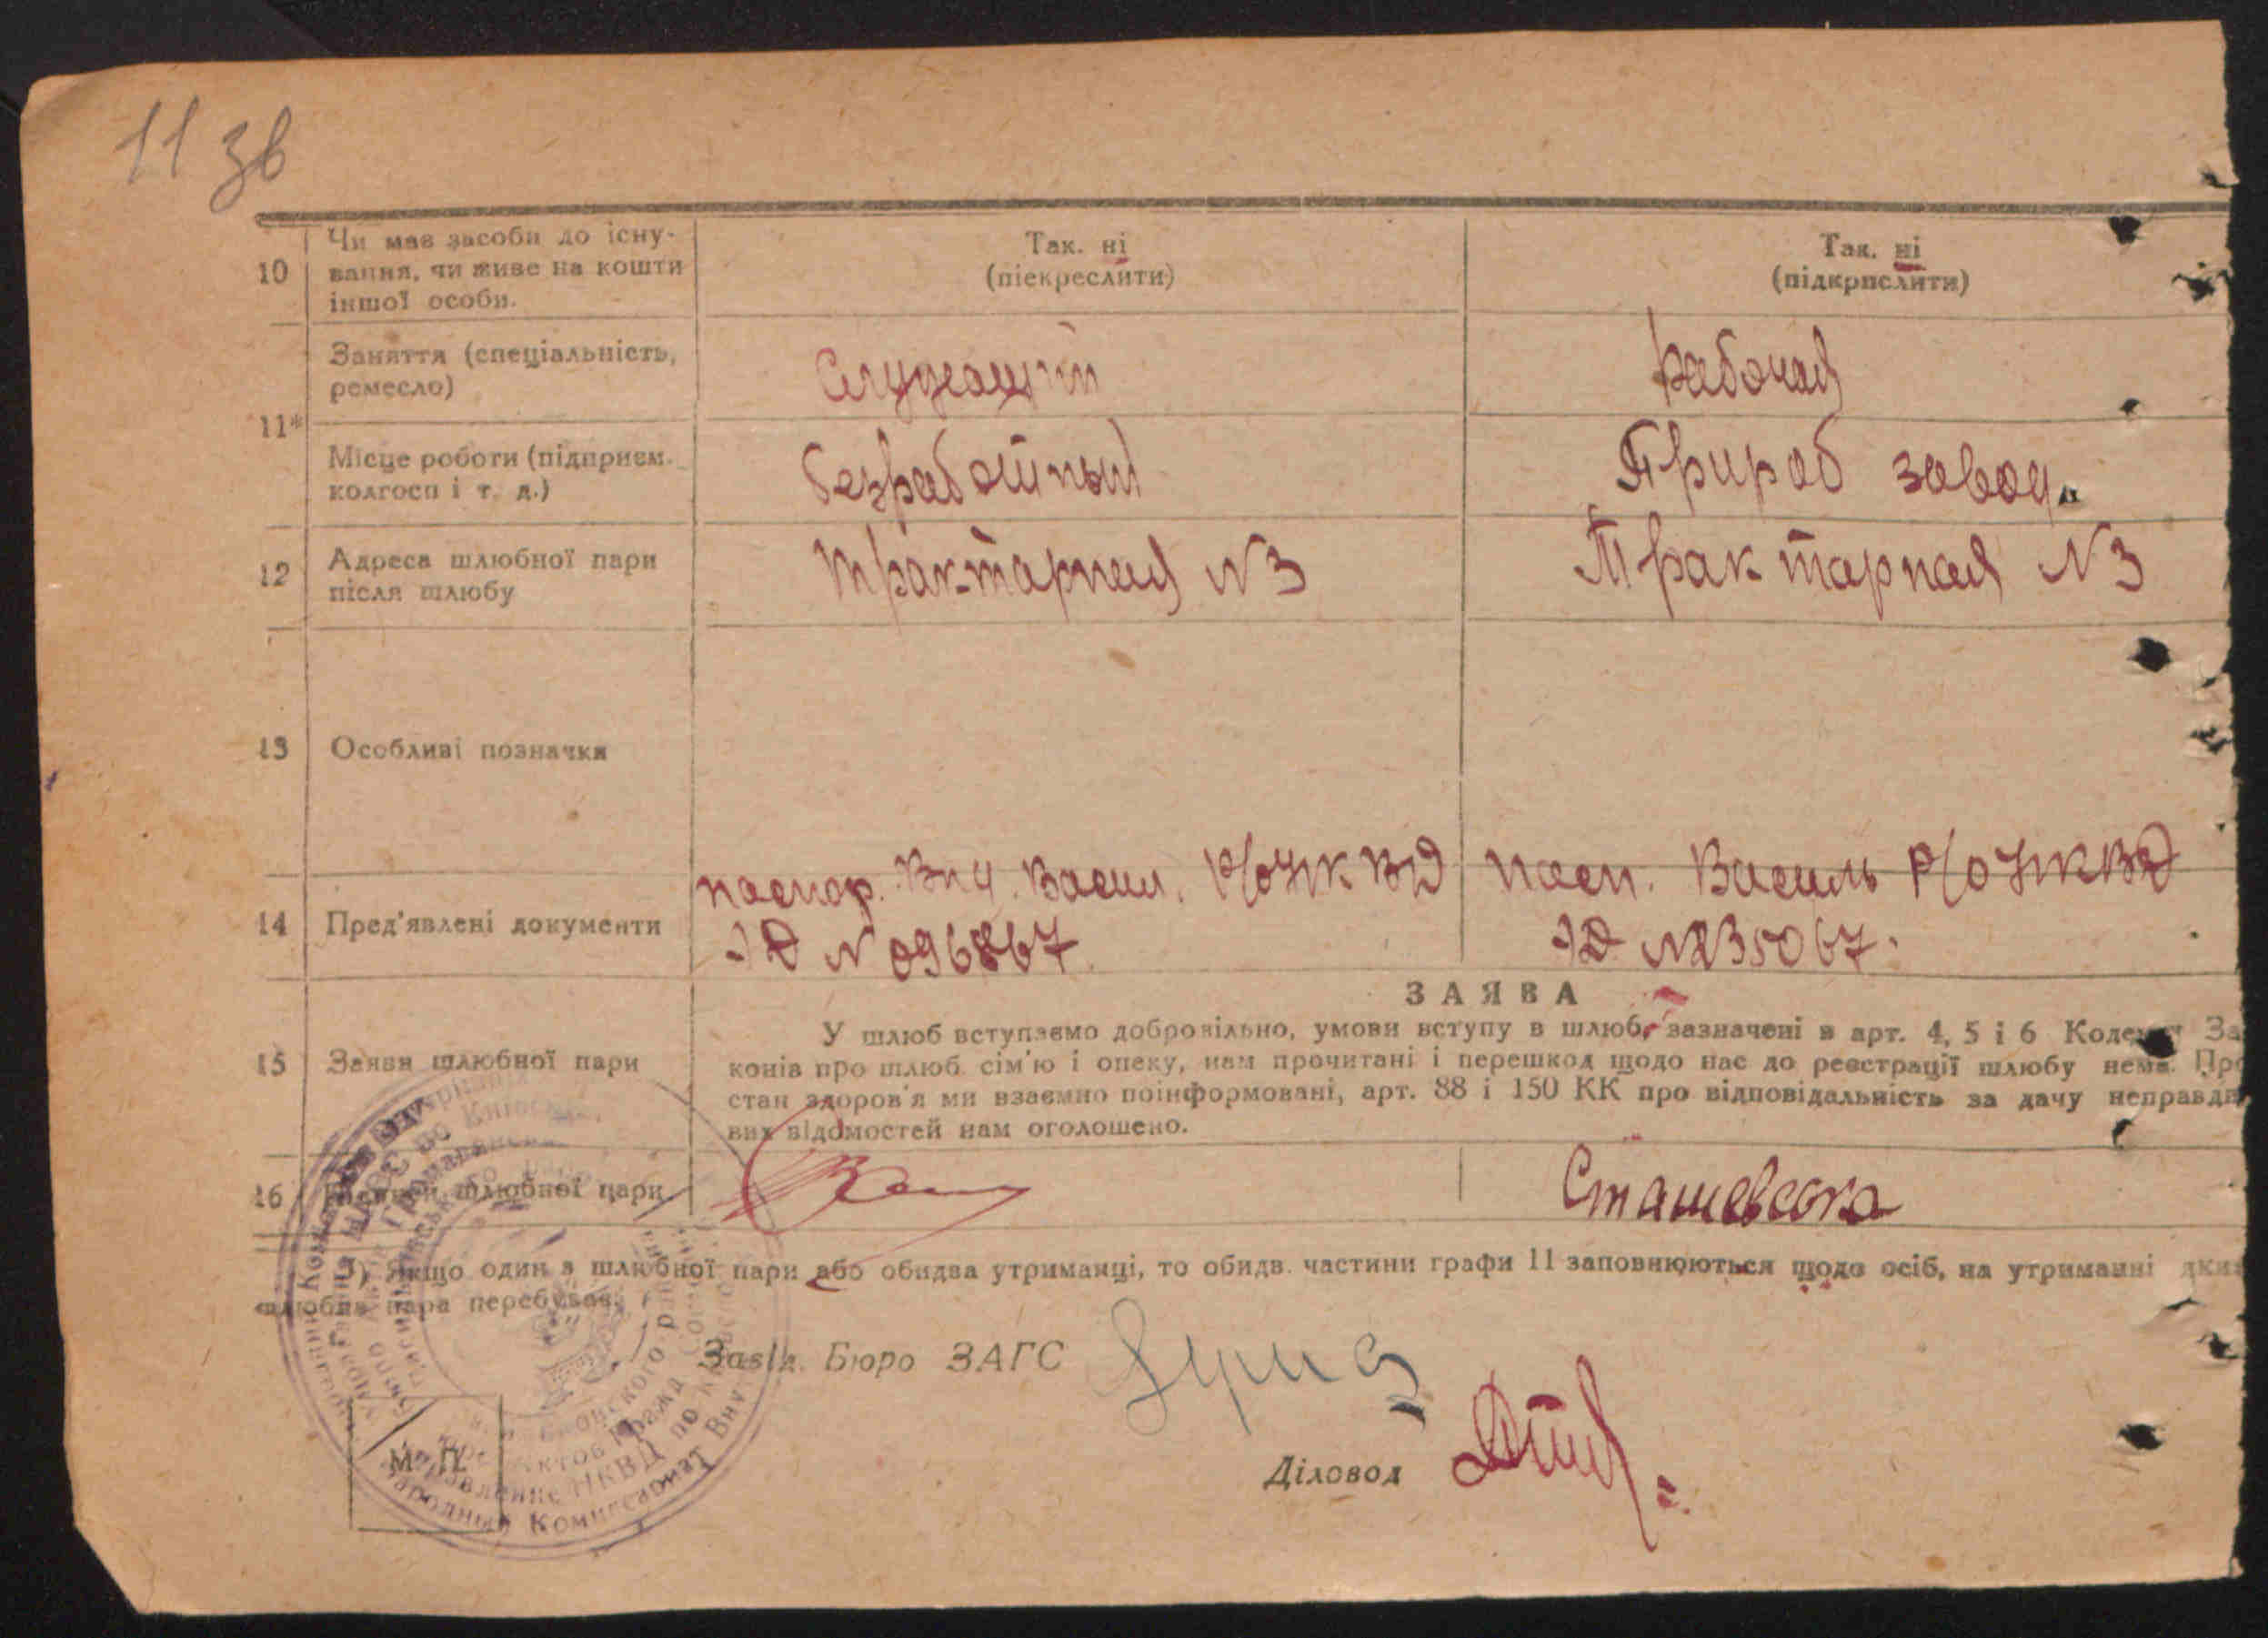 11 зв
10
Чи має засоби до існу-
вання, чи живе на кошти
іншої особи.
Так. ні
(піекреслити)
Так. ні
(підкрпслити)
11*
Заняття (спеціальність,
ремесло)
Служащий
Рабочая
Місце роботи (підприєм.
колгосп і т. д.)
безработный
завод.
12
Адреса шлюбної пари
після шлюбу
Трактарная N 3
Трактарная N 3
13
Особливі позначки
14
Пред'явлені документи
паспор. Вид. Васил. Р/О НКВД
N 096867
Васп. Василь Р/О НКВД
N 235067.
15
Заяви шлюбної пари
ЗАЯВА
У шлюб вступаємо добровільно, умови вступу в шлюб, зазначені в арт. 4, 5 і 6 Кодексу За
конів про шлюб сім'ю і опеку, нам прочитані і перешкод щодо нас до реєстрації шлюбу нема. Про
стан здоров'я ми взаємно поінформовані, арт. 88 і 150 КК про відповідальність за дачу неправди
вих відомостей нам оголошено.
16
шлюбної пари
Сташевська
1) Якщо один з шлюбної пари або обидва утриманці, то обидв. частини графи 11 заповнюються щодо осіб, на утриманні яки
шлюбна пара перебуває.
Завід. Бюро ЗАГС
Діловод
М. П.
Управление НКВД по
Народный Комиссариат Вну